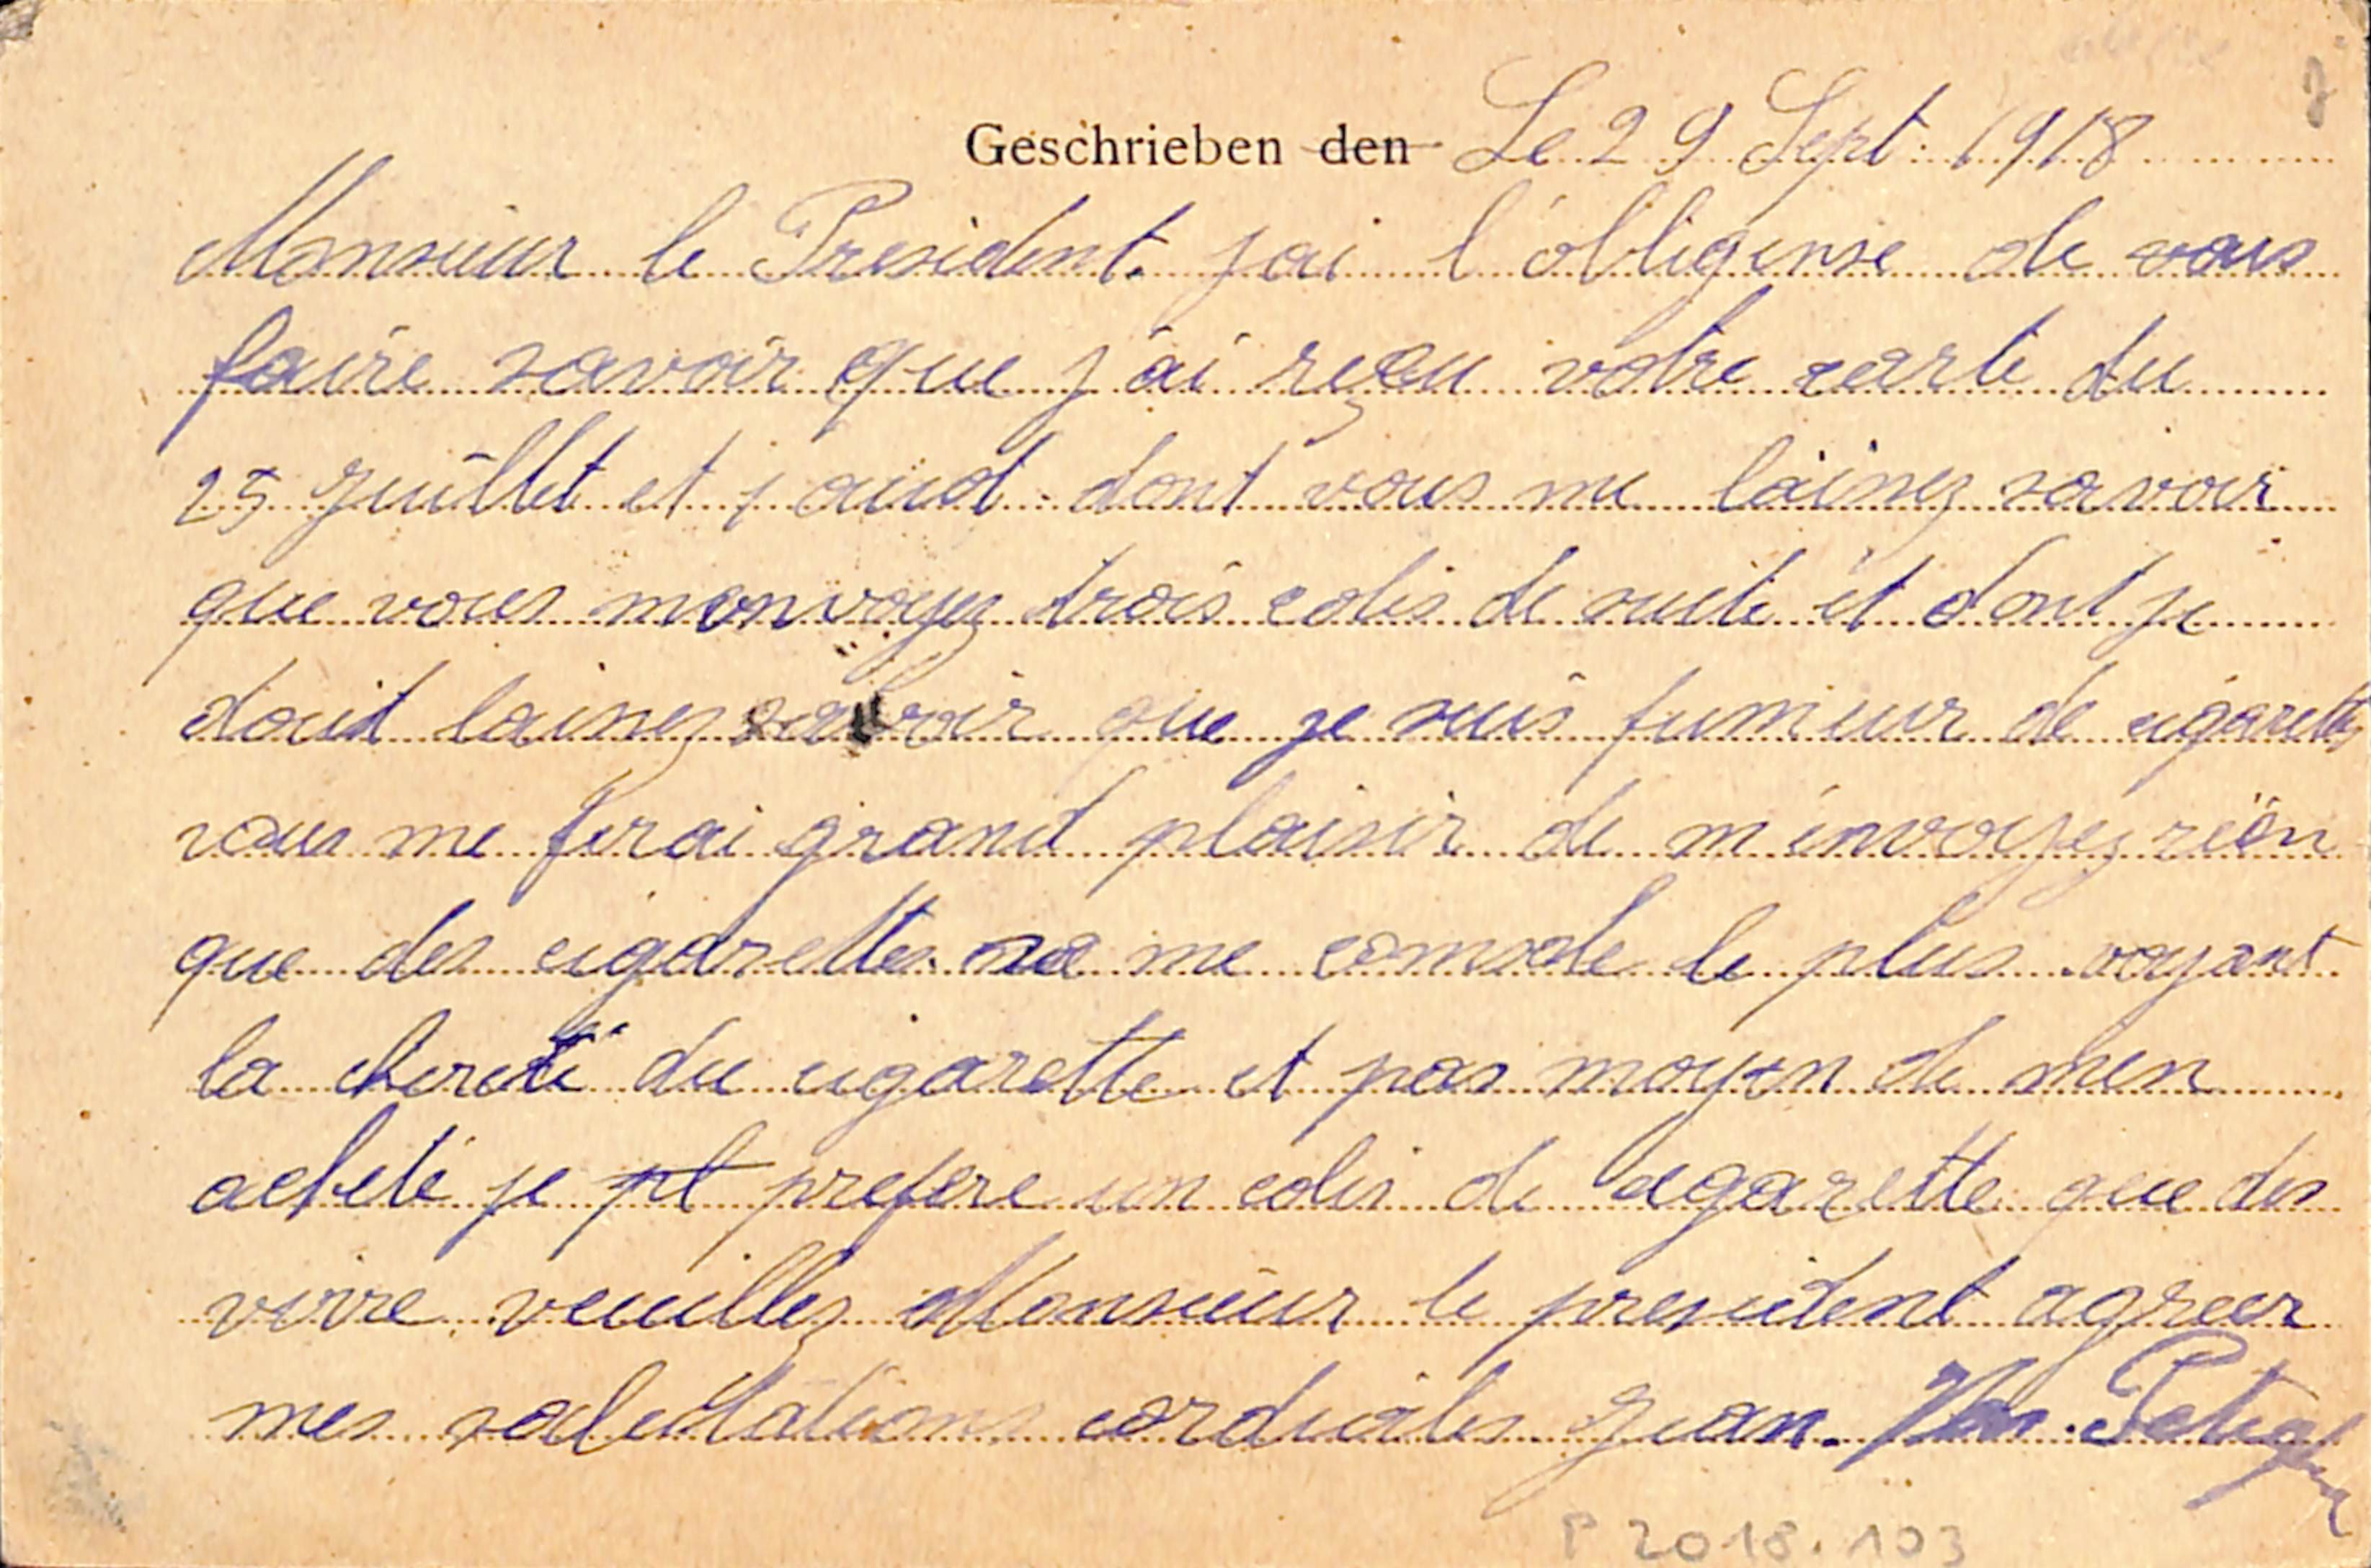 Geschrieben den Le 29 Sept. 1918
Monsieur le President. jai l'obligense de vous
faire savoir que j'ai reçu votre carte du
25 Juillet et 1 aout. dont vous me lainez savoir
que vous menvoyez trois colis de suite et dont je
doit lainez savoir que je suis fumeur de cigarettes
vous me ferai grand plaisir de m'envoyez rien
que des cigarettes sa me comsole le plus voyant
la cherete du cigarette et pas moyen de men
acheté je prefere un colis de cigarette que des
vivre veuillez Monsieur le president agreer
mes salutations cordiales Jean. Van
P 2018.103